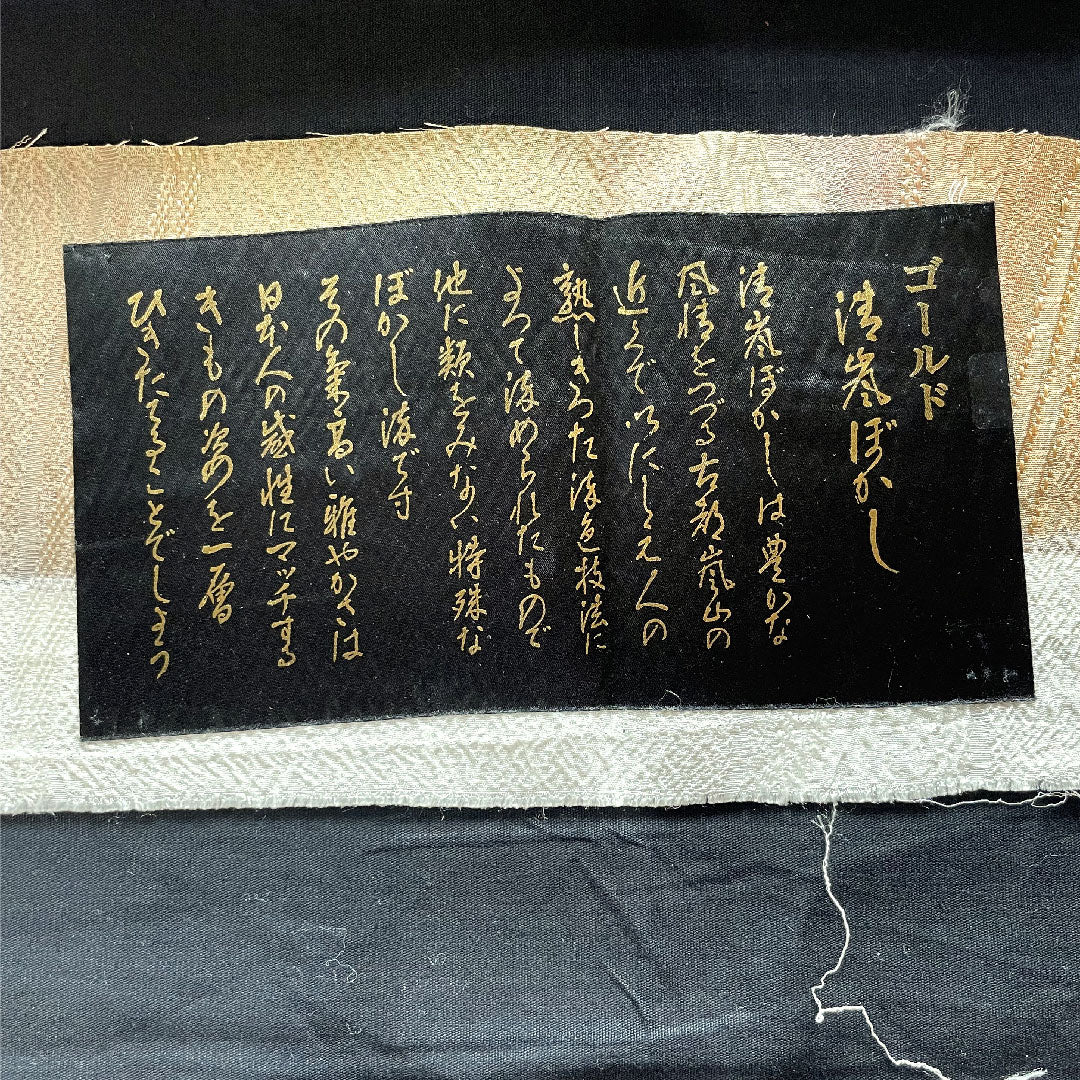 ゴールド
清嵐ぼかし
清嵐ぼかしは豊かな
風情をつづる古都嵐山の
近くで 人の
熟しきった染色技法に
よって染められたもので
他に類をみない特殊な
ぼかし染です
その氣高い雅やかさは
日本人の感性にマッチする
きもの姿を一層
ひきたてることでしょう